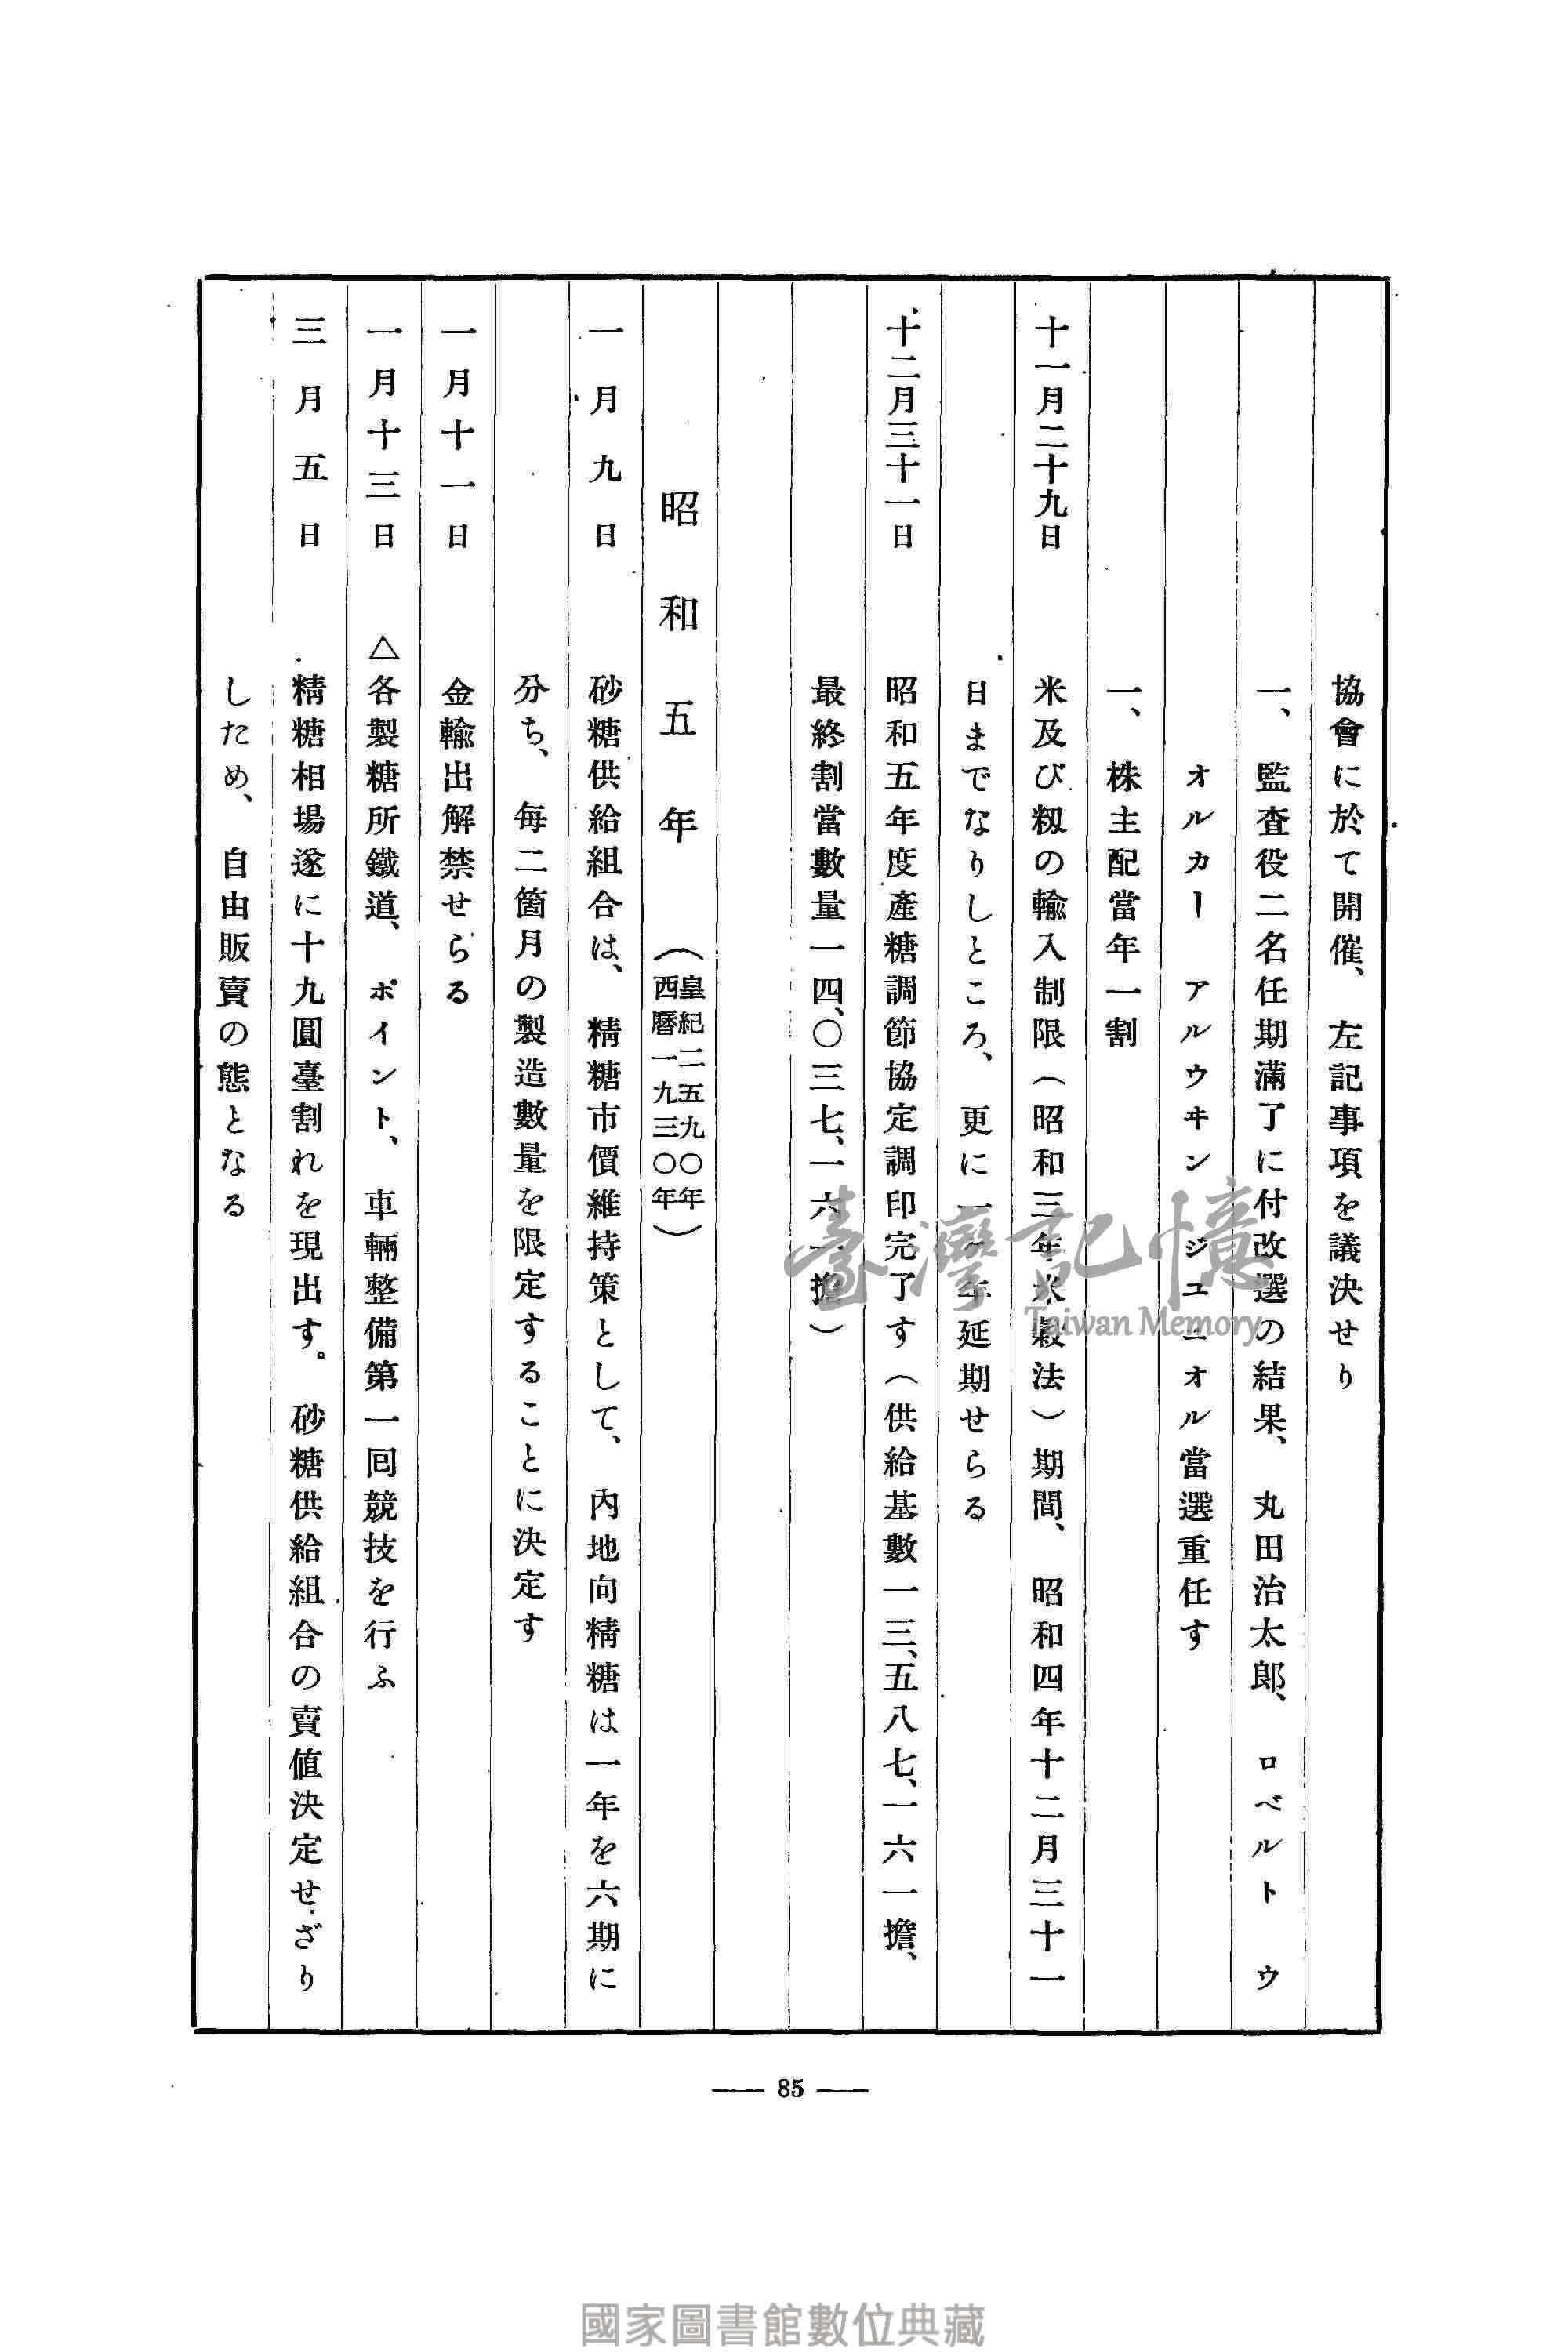 協會に於て開催、左記事項を議決せり
一、監査役二名任期滿了に付改選の結果、丸田治太郎、ロベルト ウ
オルカー アルウヰン ジユニオル當選重任す
一、株主配當年一割
十一月二十九日 米及び籾の輸入制限（昭和三年米穀法）期間、昭和四年十二月三十一
日までなりしところ、更に一ケ年延期せらる
十二月三十一日 昭和五年度產糖調節協定調印完了す（供給基數一三、五八七、一六一擔、
最終割當數量一四、〇三七、一六一擔）
昭和五年（皇紀二五九〇年
西曆一九三〇年）
一月九日 砂糖供給組合は、精糖市價維持策として、內地向精糖は一年を六期に
分ち、每二箇月の製造數量を限定することに決定す
一月十一日 金輸出解禁せらる
一月十三日 △各製糖所鐵道、ポイント、車輛整備第一回競技を行ふ
三月五日 精糖相場遂に十九圓臺割れを現出す。砂糖供給組合の賣値決定せざり
しため、自由販賣の態となる
85
臺灣記憶
Taiwan Memory
國家圖書館數位典藏